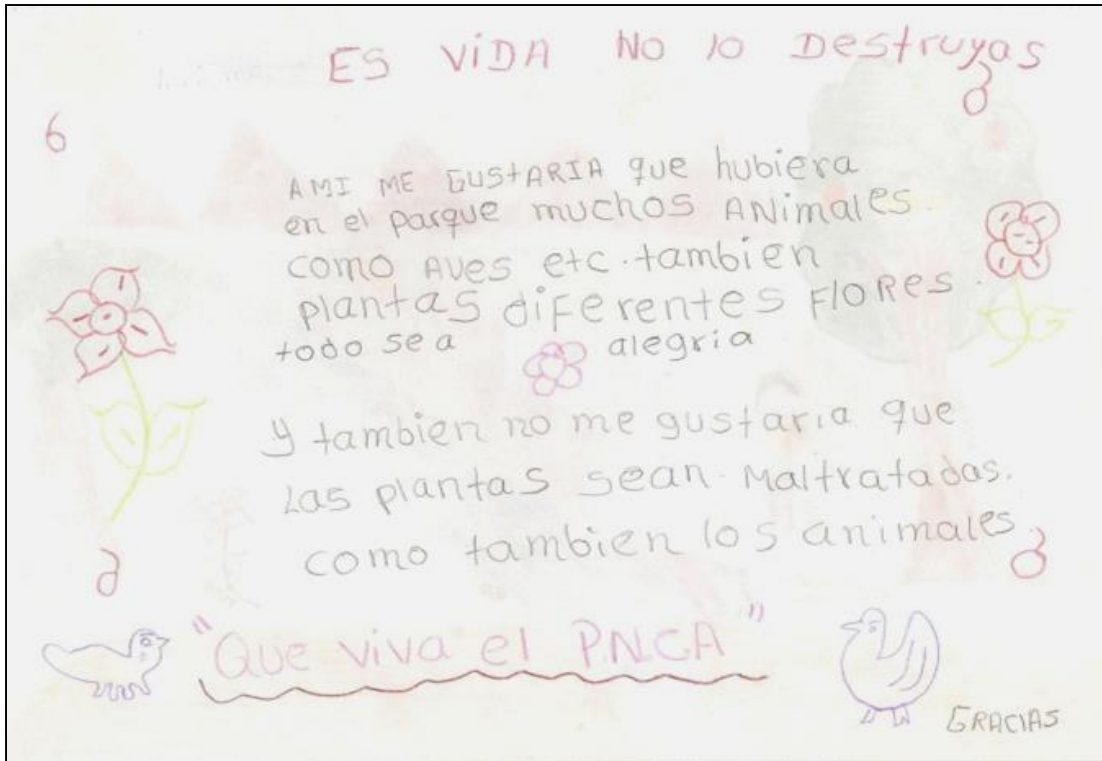 ES ViDA No lo Destruyas
6
AMI ME GUStARIA que hubiera
en el parque muchos ANimales.
como Aves etc. tambien
plantas diferentes FloRes.
todo sea alegria
y tambien no me gustaria que
Las plantas sean. Maltratadas.
como tambien los animales.
"Que viva el P.N.C.A"
GRACiAS